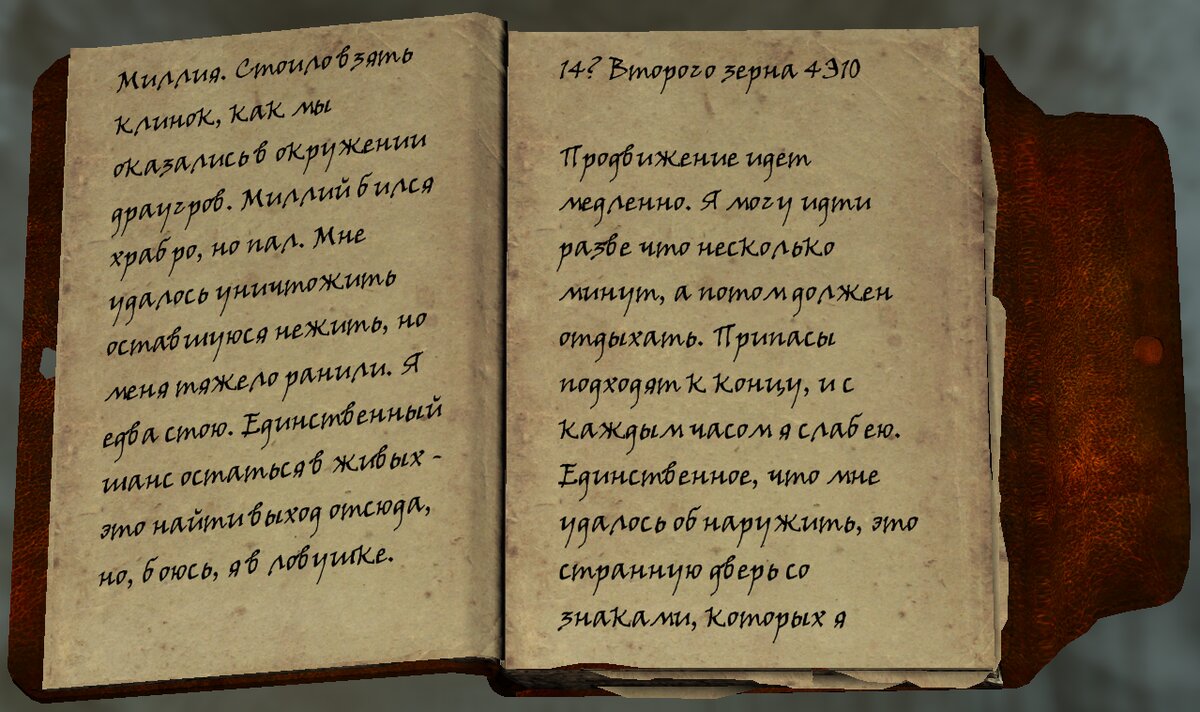 Миллия. Стоило взять
клинок, как мы
оказались в окружении
драугров. Миллий бился
храбро, но пал. Мне
удалось уничтожить
оставшуюся нежить, но
меня тяжело ранили. Я
едва стою. Единственный
шанс остаться в живых -
это найти выход отсюда,
но, боюсь, я в ловушке.
14? Второго зерна 4Э10
Продвижение идет
медленно. Я могу идти
разве что несколько
минут, а потом должен
отдыхать. Припасы
подходят к концу, и с
каждым часом я слабею.
Единственное, что мне
удалось обнаружить, это
странную дверь со
знаками, которых я